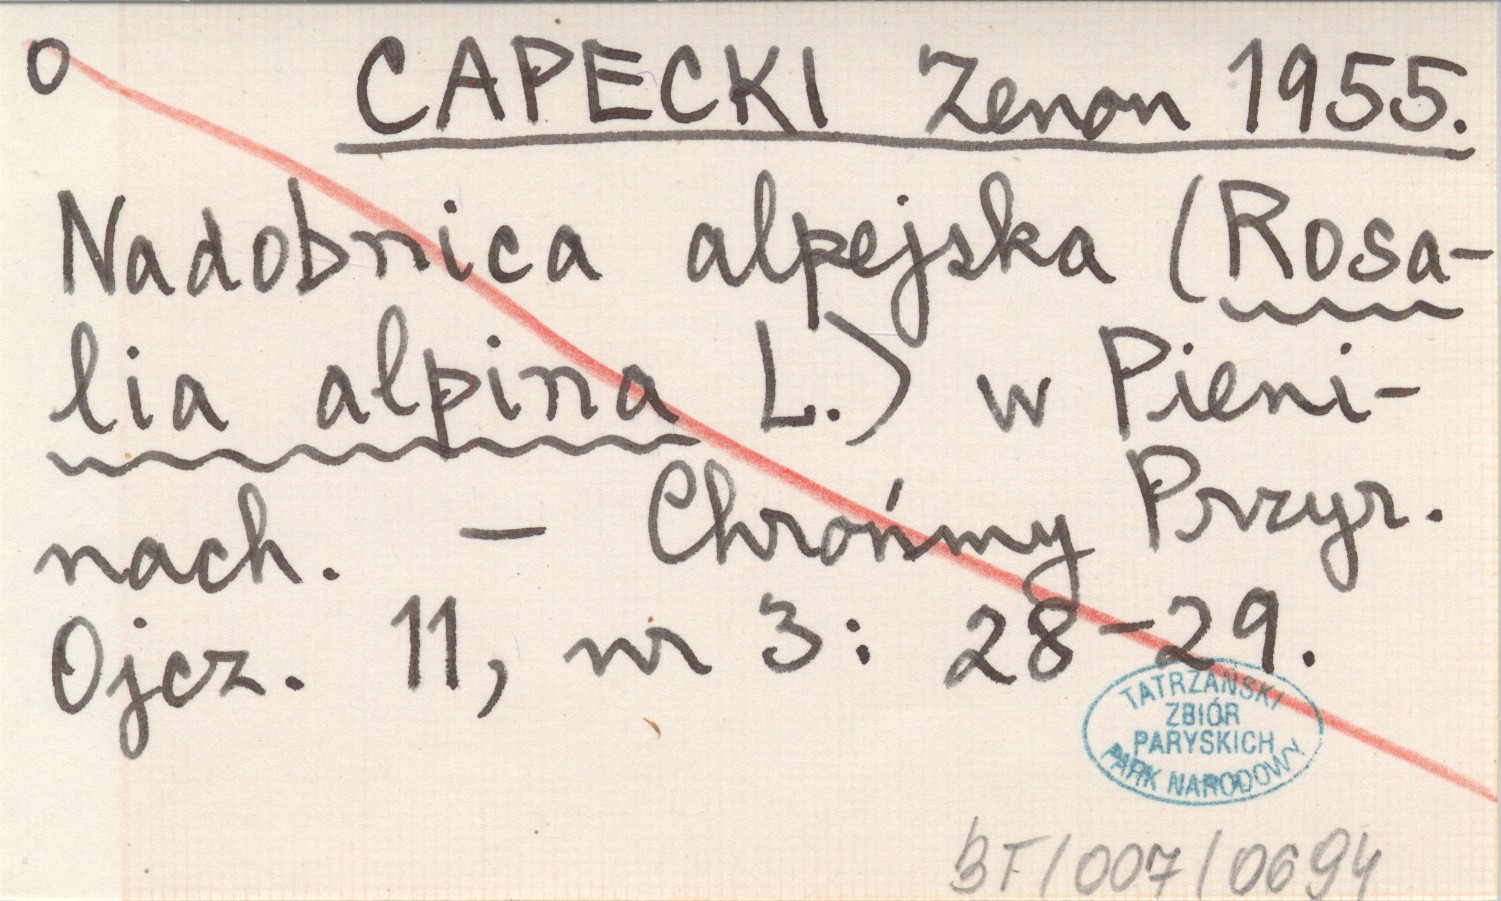 O CAPECKI Zenon 1955.
Nadobnica alpejska (Rosa-
lia alpina L.) w Pieni-
nach. - Chrońmy Przyr.
Ojcz. 11, nr 3: 28-29.
TATRZAŃSKI
ZBIÓR
PARYSKICH
PARK NARODOWY
BF/007/0694